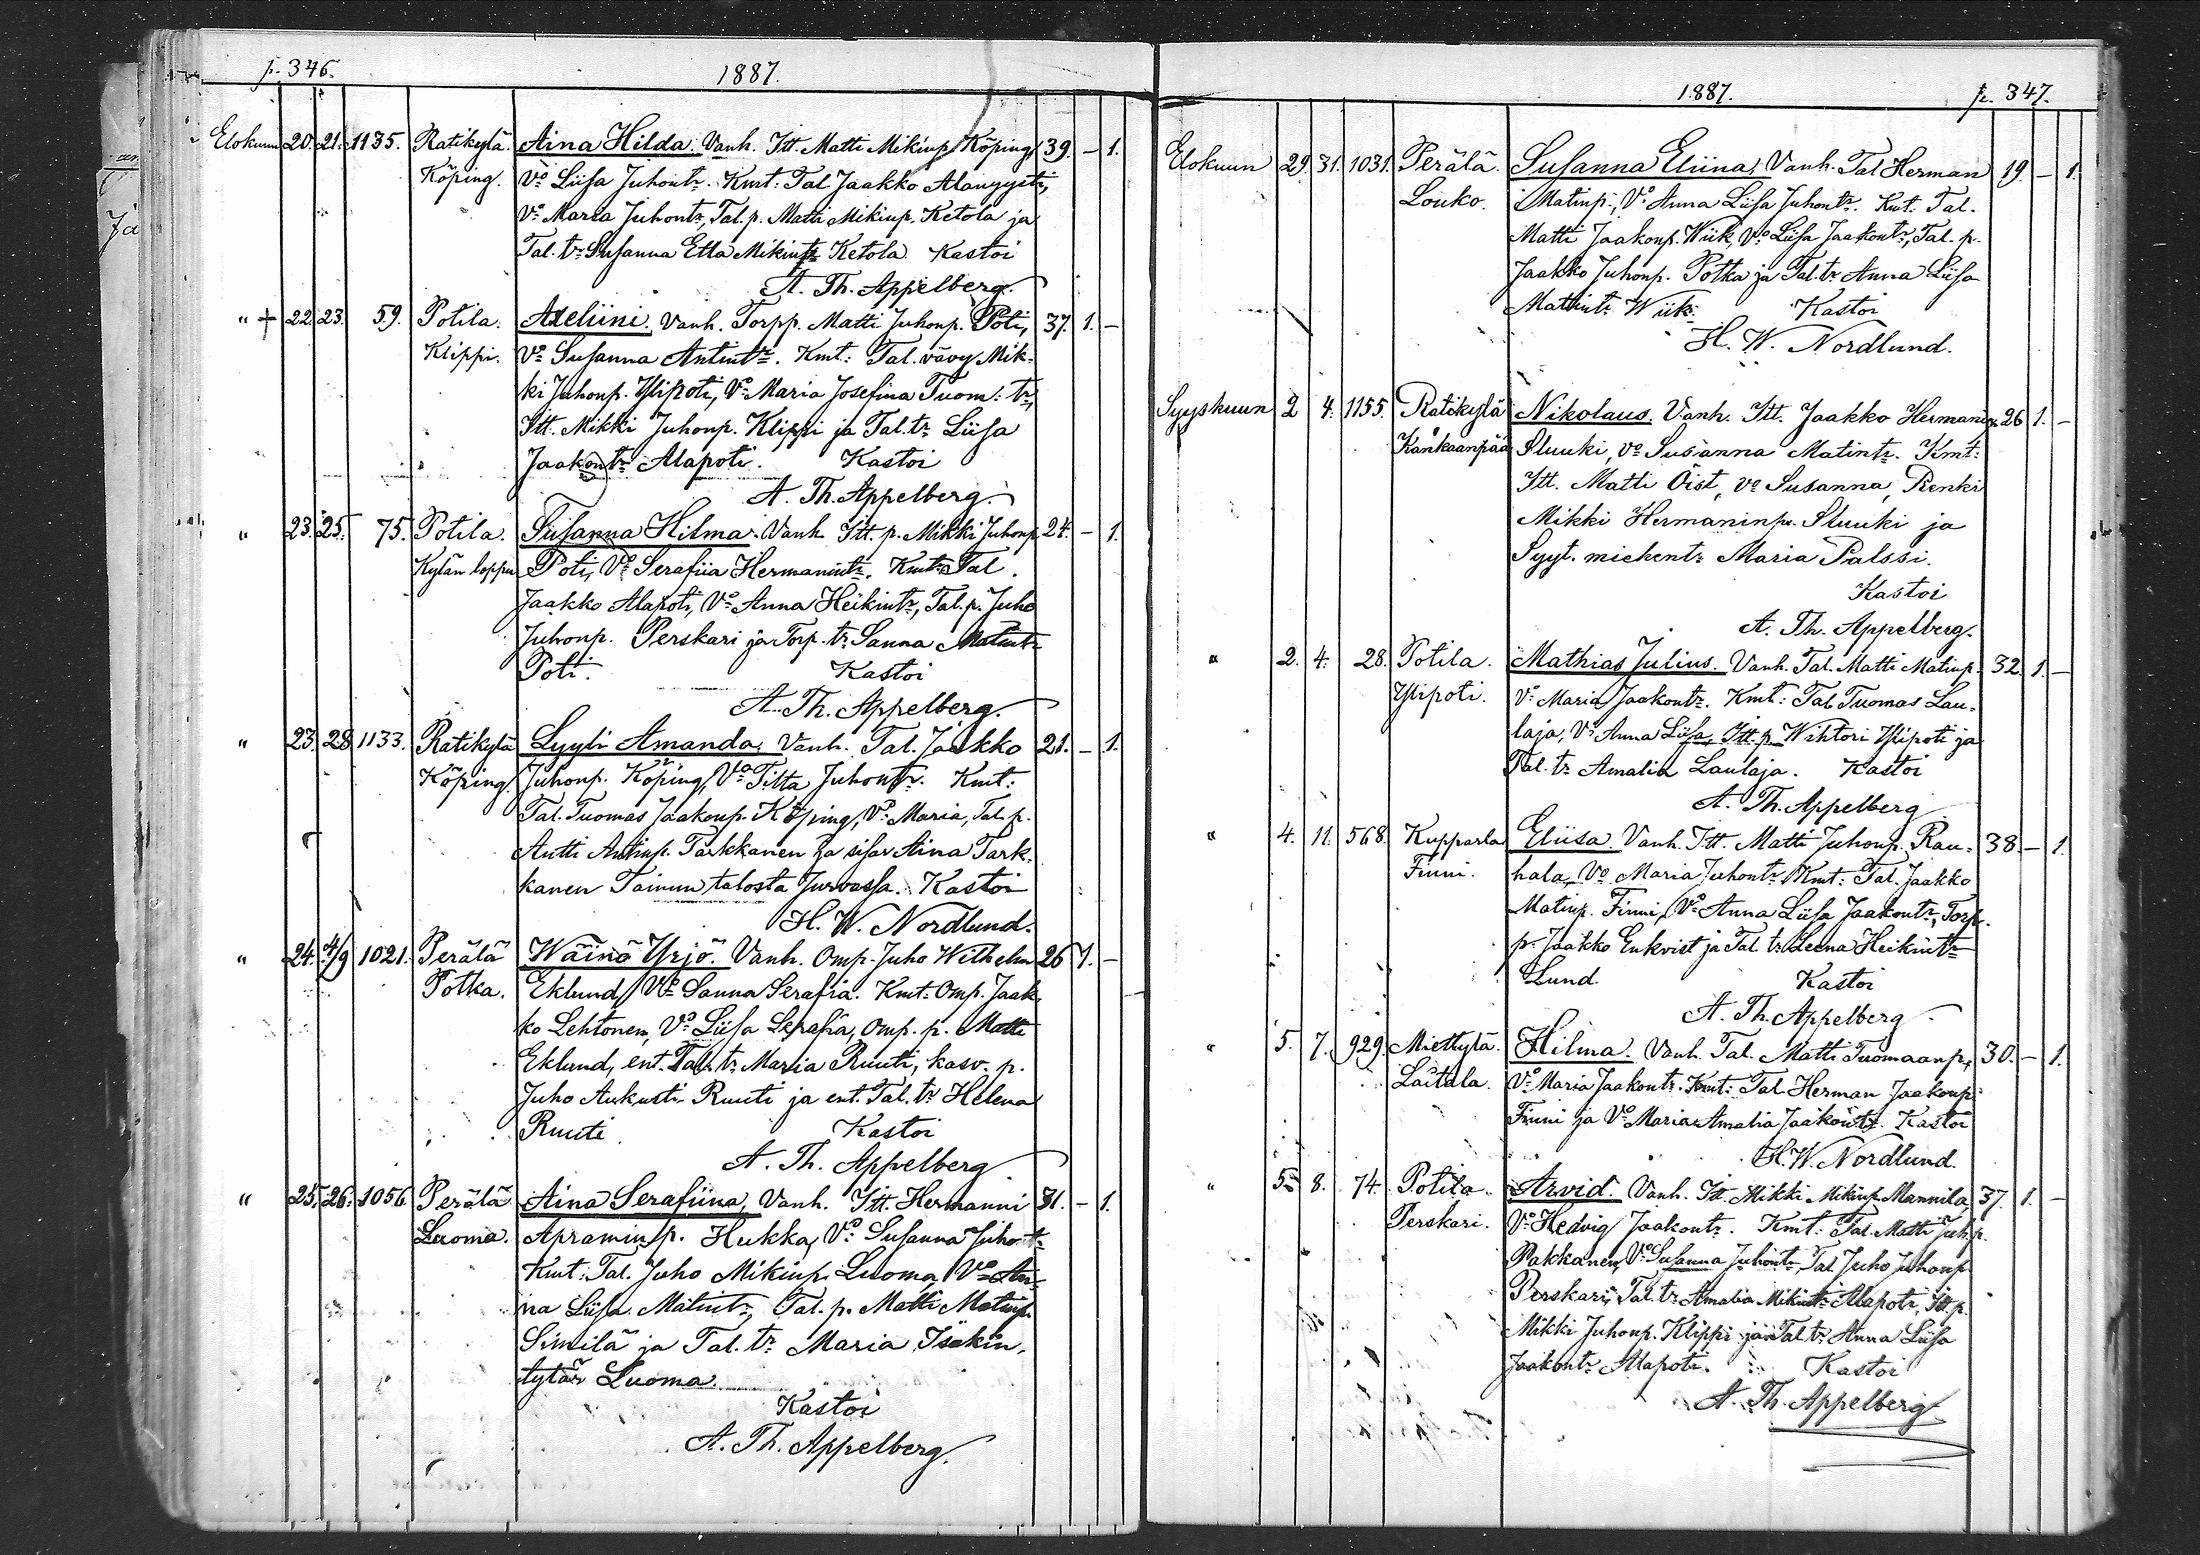 p. 346.
1887.
Elokuun 20. 21. 1135. Ratikylä. Aina Hilda. Vanh. Itt. Matti Mikinp. Köping, 39. – 1.
Köping. Vo Liisa Juhontr. Kmt: Tal Jaakko Alanyysti,
Vo Maria Juhontr, Tal. p. Matti Mikinp. Ketola ja
Tal. tr Susanna Etla Mikintr Ketola Kastoi
A. Th. Appelberg.
" + 22. 23. 59. Potila. Axeliini. Vanh. Torpp. Matti Juhonp. Poti, 37. 1. –
Klippi. Vo Susanna Antintr. Kmt: Tal. vävy Mik-
ki Juhonp. Ylipoti, Vo Maria Josefina Tuom: tr,
Itt. Mikki Juhonp. Klippi ja Tal. tr Liisa
Jaakontr Alapoti. Kastoi
A. Th. Appelberg.
" 23. 25. 75. Potila. Susanna Hilma. Vanh Itt. p. Mikki Juhonp. 24. – 1.
Kylän loppu Poti, Vo Serafiia Hermanintr. Kmt: Tal.
Jaakko Alapoti, Vo Anna Heikintr, Tal. p. Juho
Juhonp. Perskari ja Torp. tr Sanna Matintr
Poti. Kastoi
A. Th. Appelberg.
" 23. 28 1133. Ratikylä Lyyli Amanda. Vanh. Tal. Jaakko 21. – 1.
Köping. Juhonp. Köping, Vo Titta Juhontr. Kmt:
Tal. Tuomas Jaakonp. Köping, Vo Maria, Tal. p.
Antti Antinp. Tarkkanen ja sisar Aina Tark-
kanen Tainun talosta Jurvassa. Kastoi
H. W. Nordlund.
" 24. 4/9 1021. Perälä Wäinö Yrjö. Vanh. Omp. Juho Wilhelm 26 1. –
Potka. Eklund, Vo Sanna Serafia. Kmt: Omp. Jaak-
ko Lehtonen, Vo Liisa Serafia, Omp. p. Matti
Eklund, ent. Tal. tr Maria Ruuti, kasv. p.
Juho Aukusti Ruuti ja ent. Tal. tr Helena
Ruuti Kastoi
A. Th. Appelberg
" 25. 26. 1056. Perälä Aina Serafiina. Vanh. Itt. Hermanni 31. – 1.
Luoma. Apraminp. Hukka, Vo Susanna Juhontr
Kmt: Tal. Juho Mikinp. Luoma, Vo An-
na Liisa Matintr, Tal. p. Matti Matinp.
Similä ja Tal. tr Maria Isakin
tytär Luoma.
Kastoi
A. Th. Appelberg.
1887. p. 347.
Elokuun 29. 31. 1031. Perälä. Susanna Eliina. Vanh. Tal Herman 19. – 1.
Louko. Matinp., Vo Anna Liisa Juhontr. Kmt: Tal.
Matti Jaakonp. Wiik, Vo Liisa Jaakontr, Tal. p.
Jaakko Juhonp. Potka ja Tal. tr Anna Liisa
Matintr Wiik. Kastoi
H. W. Nordlund.
Syyskuun 2 4. 1155. Ratikylä Nikolaus. Vanh. Itt. Jaakko Hermanin 26 1. –
Kankaanpää Sluuki, Vo Susanna Matintr. Kmt:
Itt. Matti Öist, Vo Susanna, Renki
Mikki Hermaninp. Sluuki ja
Syyt. miehentr Maria Palssi.
Kastoi
A. Th. Appelberg.
" 2. 4. 28. Potila. Mathias Julius. Vanh. Tal. Matti Matinp. 32. 1. –
Ylipoti. Vo Maria Jaakontr. Kmt: Tal. Tuomas Lau-
laja, Vo Anna Liisa, Itt. p. Wihtori Ylipoti ja
Tal. tr Amalia Laulaja. Kastoi
A. Th. Appelberg
" 4. 11. 568. Kupparla Eliisa. Vanh. Itt. Matti Juhonp. Rau- 38. – 1.
Finni. hala, Vo Maria Juhontr Kmt: Tal. Jaakko
Matinp. Finni, Vo Anna Liisa Jaakontr, Torp.
p. Jaakko Enkvist ja Tal. tr Leena Heikintr
Lund. Kastoi
A. Th. Appelberg
" 5. 7. 929. Miettylä. Hilma. Vanh. Tal. Matti Tuomaanp., 30. – 1.
Laitala. Vo Maria Jaakontr. Kmt: Tal Herman Jaakonp.
Finni ja Vo Maria Amalia Jaakontr. Kastoi
H. W. Nordlund.
" 5. 8. 74. Potila. Arvid. Vanh. Itt. Mikki Mikinp. Mannila, 37. 1. –
Perskari. Vo Hedvig Jaakontr. Kmt: Tal. Matti Juh. p.
Pakkanen, Vo Susanna Juhontr, Tal. Juho Juhonp.
Perskari, Tal. tr Amalia Mikintr Alapoti, Itt. p.
Mikki Juhonp. Klippi ja Tal. tr Anna Liisa
Jaakontr Alapoti. Kastoi
A. Th. Appelberg